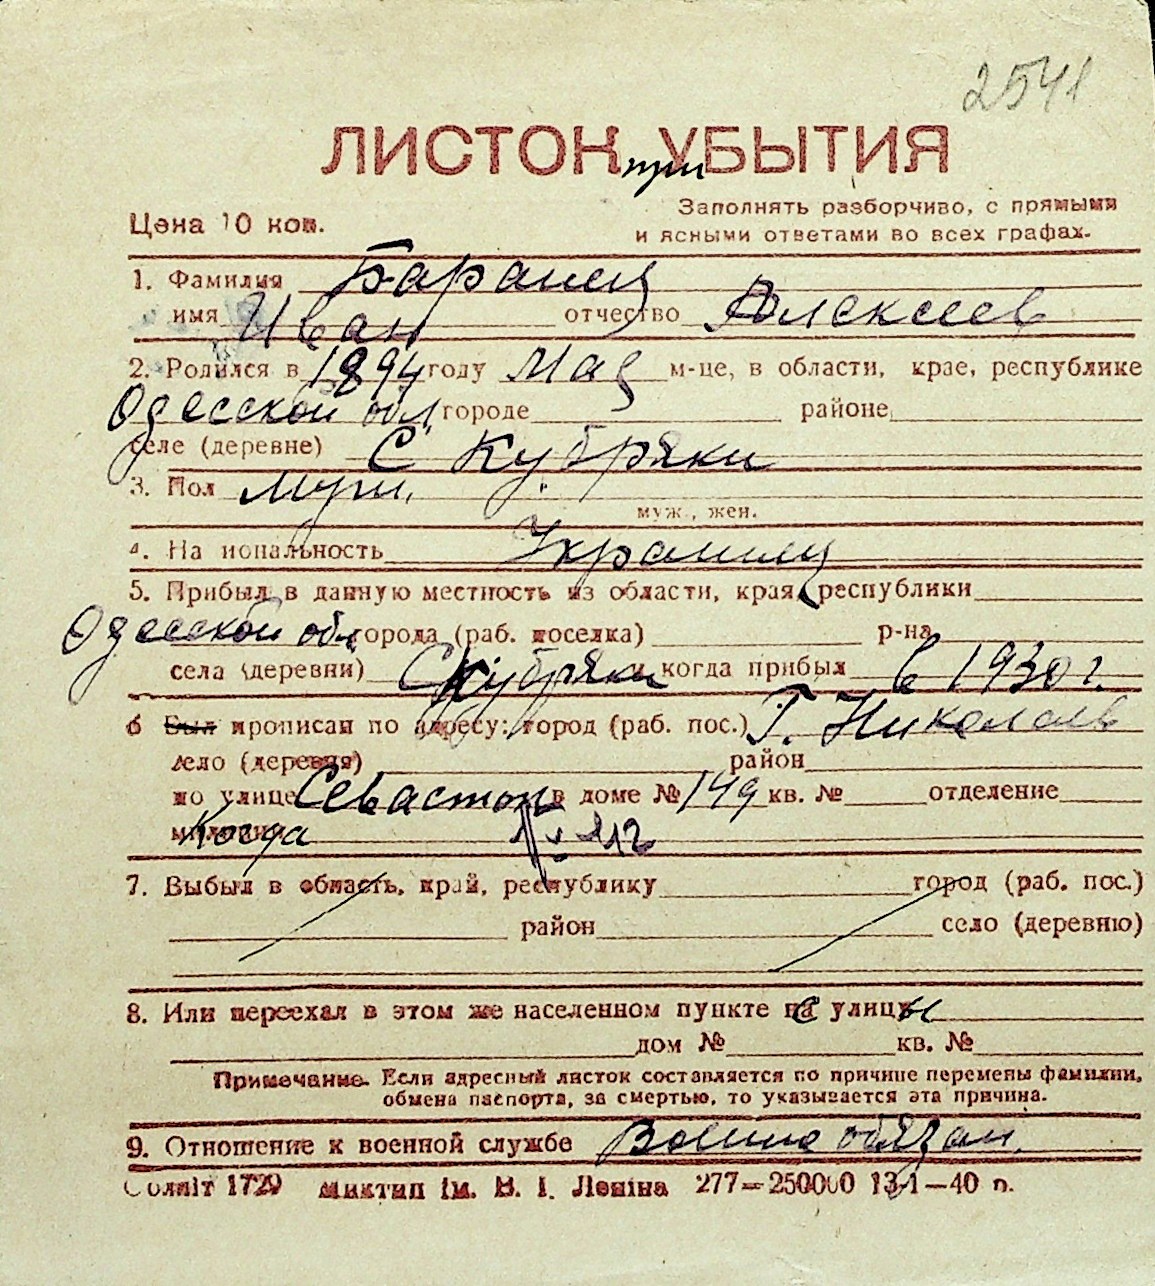 2541
ЛИСТОК при УБЫТИЯ
Цена 10 коп.
Заполнять разборчиво, с прямыми
и ясными ответами во всех графах.
1. Фамилия Баранец
имя Иван отчество Алексеев
2. Родился в 1894 году мая м-це, в области, крае, республике
Одесской обл. городе районе
селе (деревне) с Кубряки
3. Пол муж.
муж., жен.
4. Национальность Украинец
5. Прибыл в данную местность из области, края, республики
Одесской обл города (раб. поселка) р-на
села (деревни) С Кубряки и когда прибыл в 1930 г.
6 Был прописан по адресу: город (раб. пос.) г. Николаев
село (деревня) район
по улице Севастоп в доме № 149 кв. № отделение
милиции Когда
7. Выбыл в область, край, республику город (раб. пос.)
район село (деревню)
8. Или переехал в этом же населенном пункте на с улицы
дом № кв. №
Примечание. Если адресный листок составляется по причине перемены фамилии,
обмена паспорта, за смертью, то указывается эта причина.
9. Отношение к военной службе Военно обязан.
Солліт 1729 Миктип ім. В. І. Леніна 277—250000 13-1—40 р.